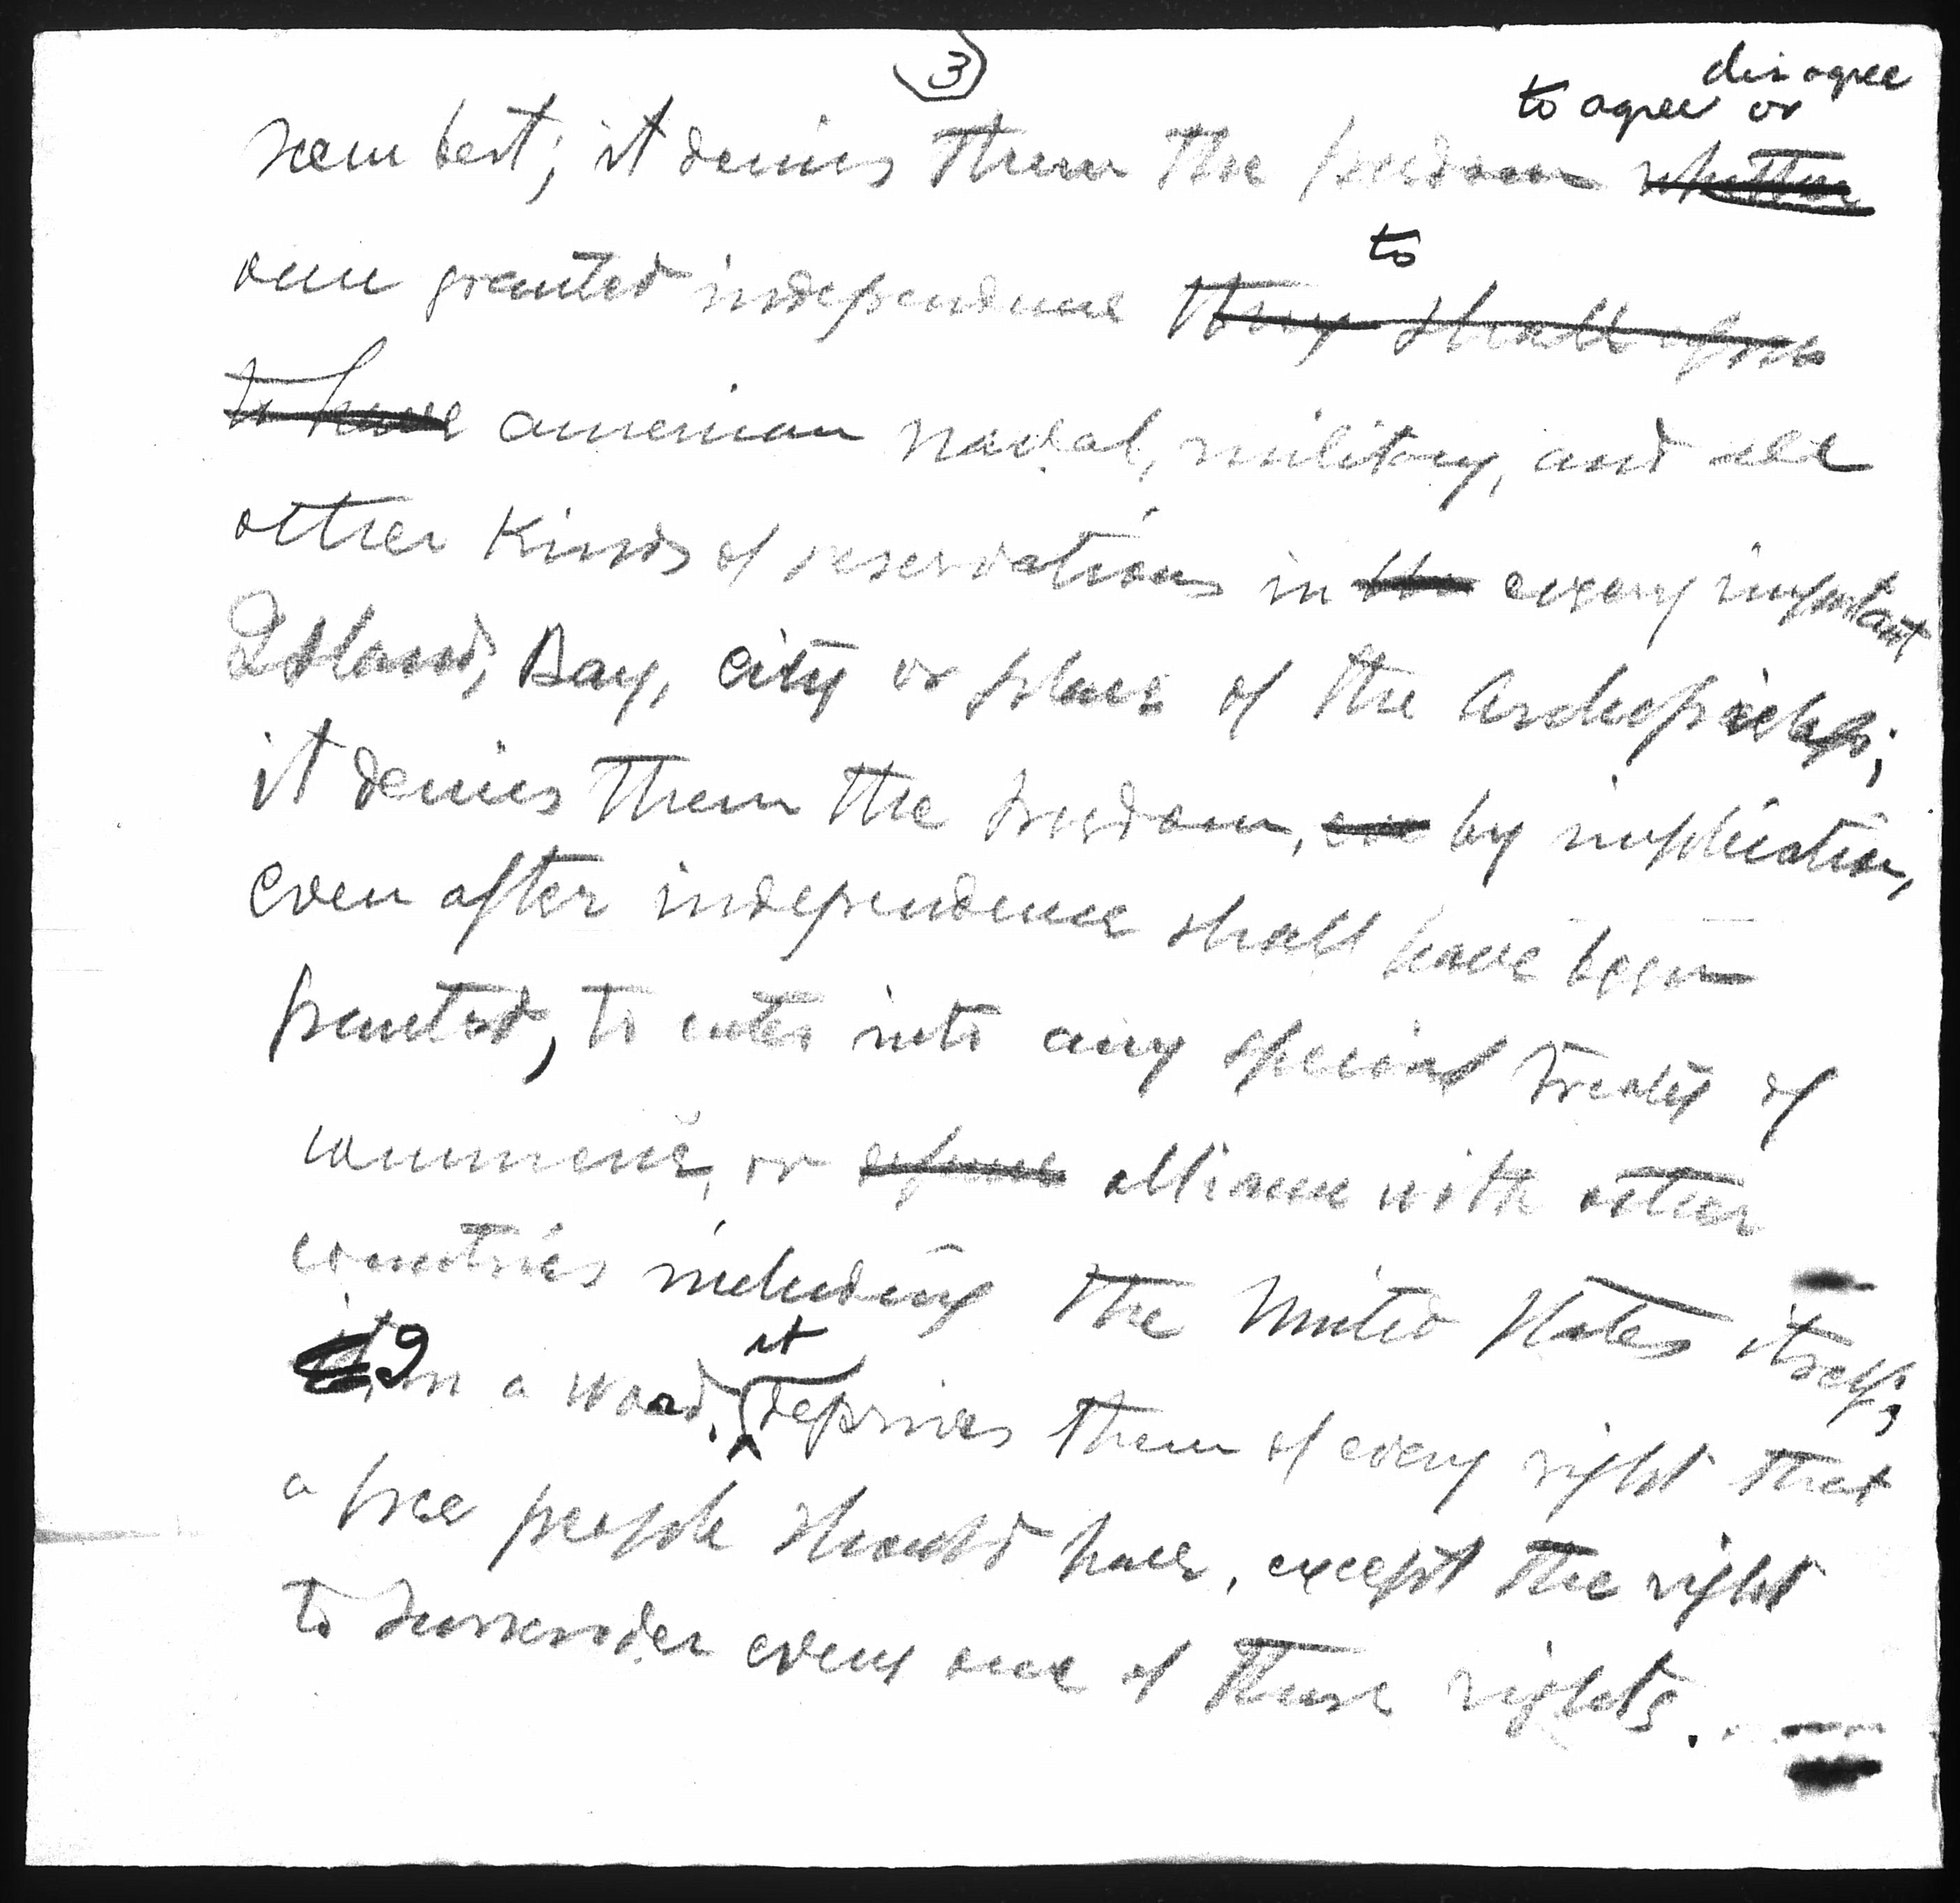 3
disagree
to agree or
seem best; it denies them the freedom whether
once granted independence they shall agree
to
to have american naval, military, and all
other kinds of reservations in the every important
Island, Bay, city or place of the Archipielago;
it denies them the freedom, by implication,
even after independence shall have been
granted, to enter into any special treaty of
commerce, or alliance with other
countries including the United States itself;
it in a word, it deprives them of every right that
a free people should have, except the right
to surrender every one of these rights.